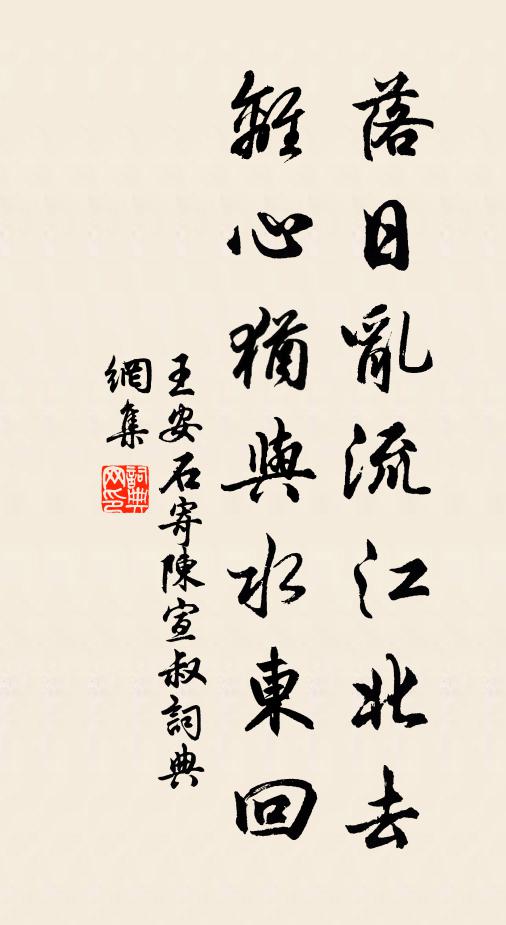 落日亂流江北去
離心猶與水東回
王安石寄陳宣叔詞典
網集
詞典
网印